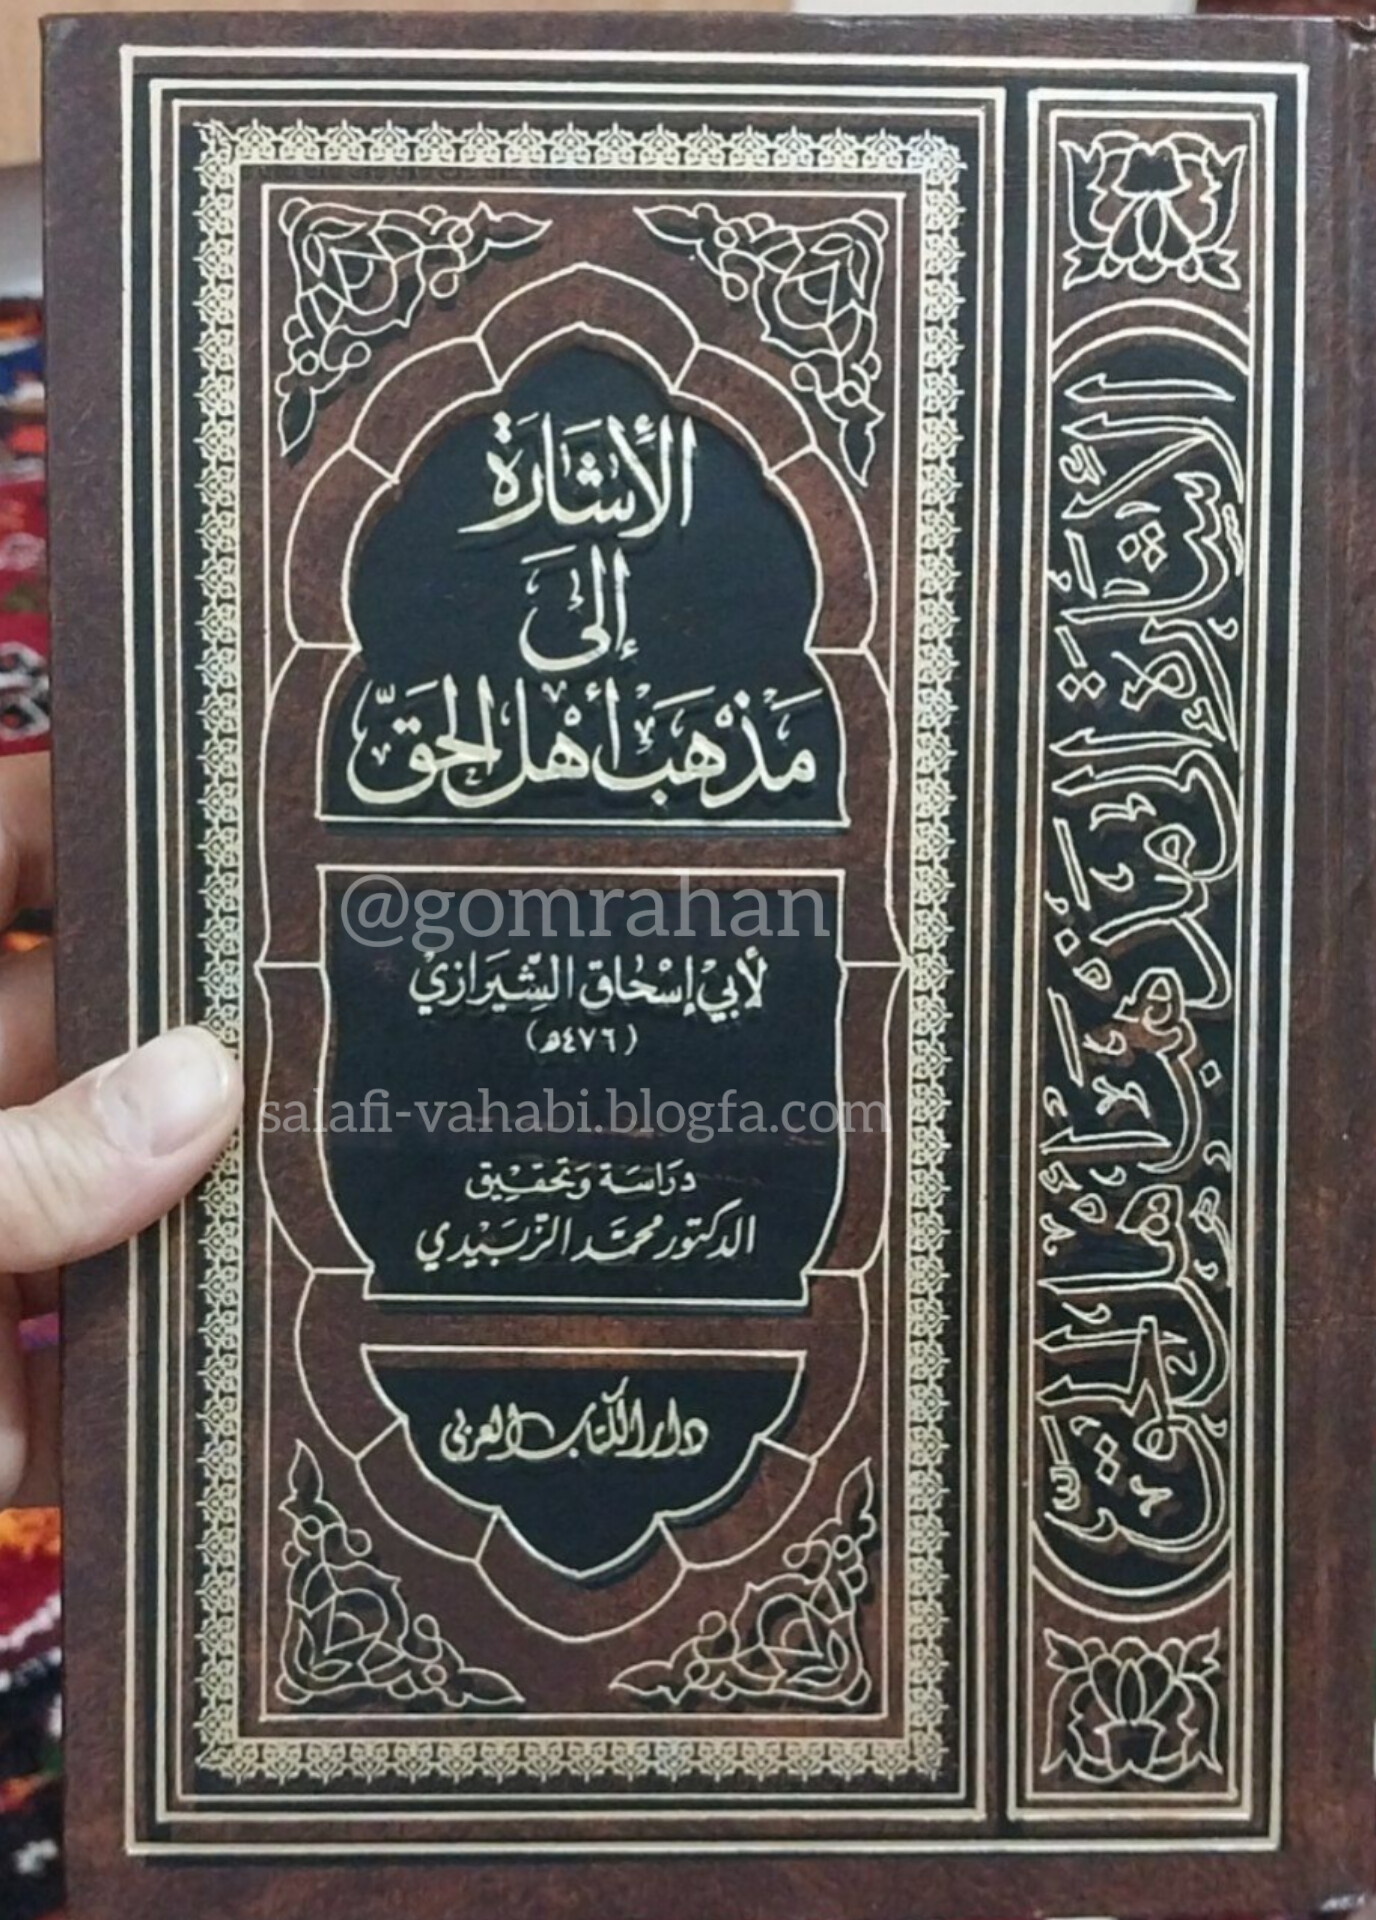 الإشارة
إلى
مذهب أهل الحق
@gomrahan
لأبي إسحاق الشيرازي
(٤٧٦هـ)
salafi-vahabi.blogfa.com
دراسة وتحقيق
الدكتور محمد الزبيدي
دار الكتاب العربي
الإشارة إلى مذهب أهل الحق